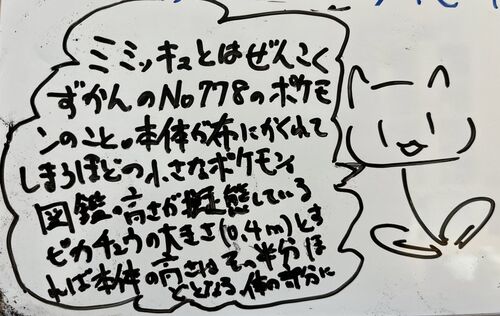 ミミッキュとはぜんこく
ずかんのNo778のポケモ
ンのこと。本体が布にかくれて
しまうほどの小さなポケモン
図鑑の高さが擬態している
ピカチュウの大きさ(0.4m)とす
れば本体の高さはその半分ほ
どとなる。体の部分に